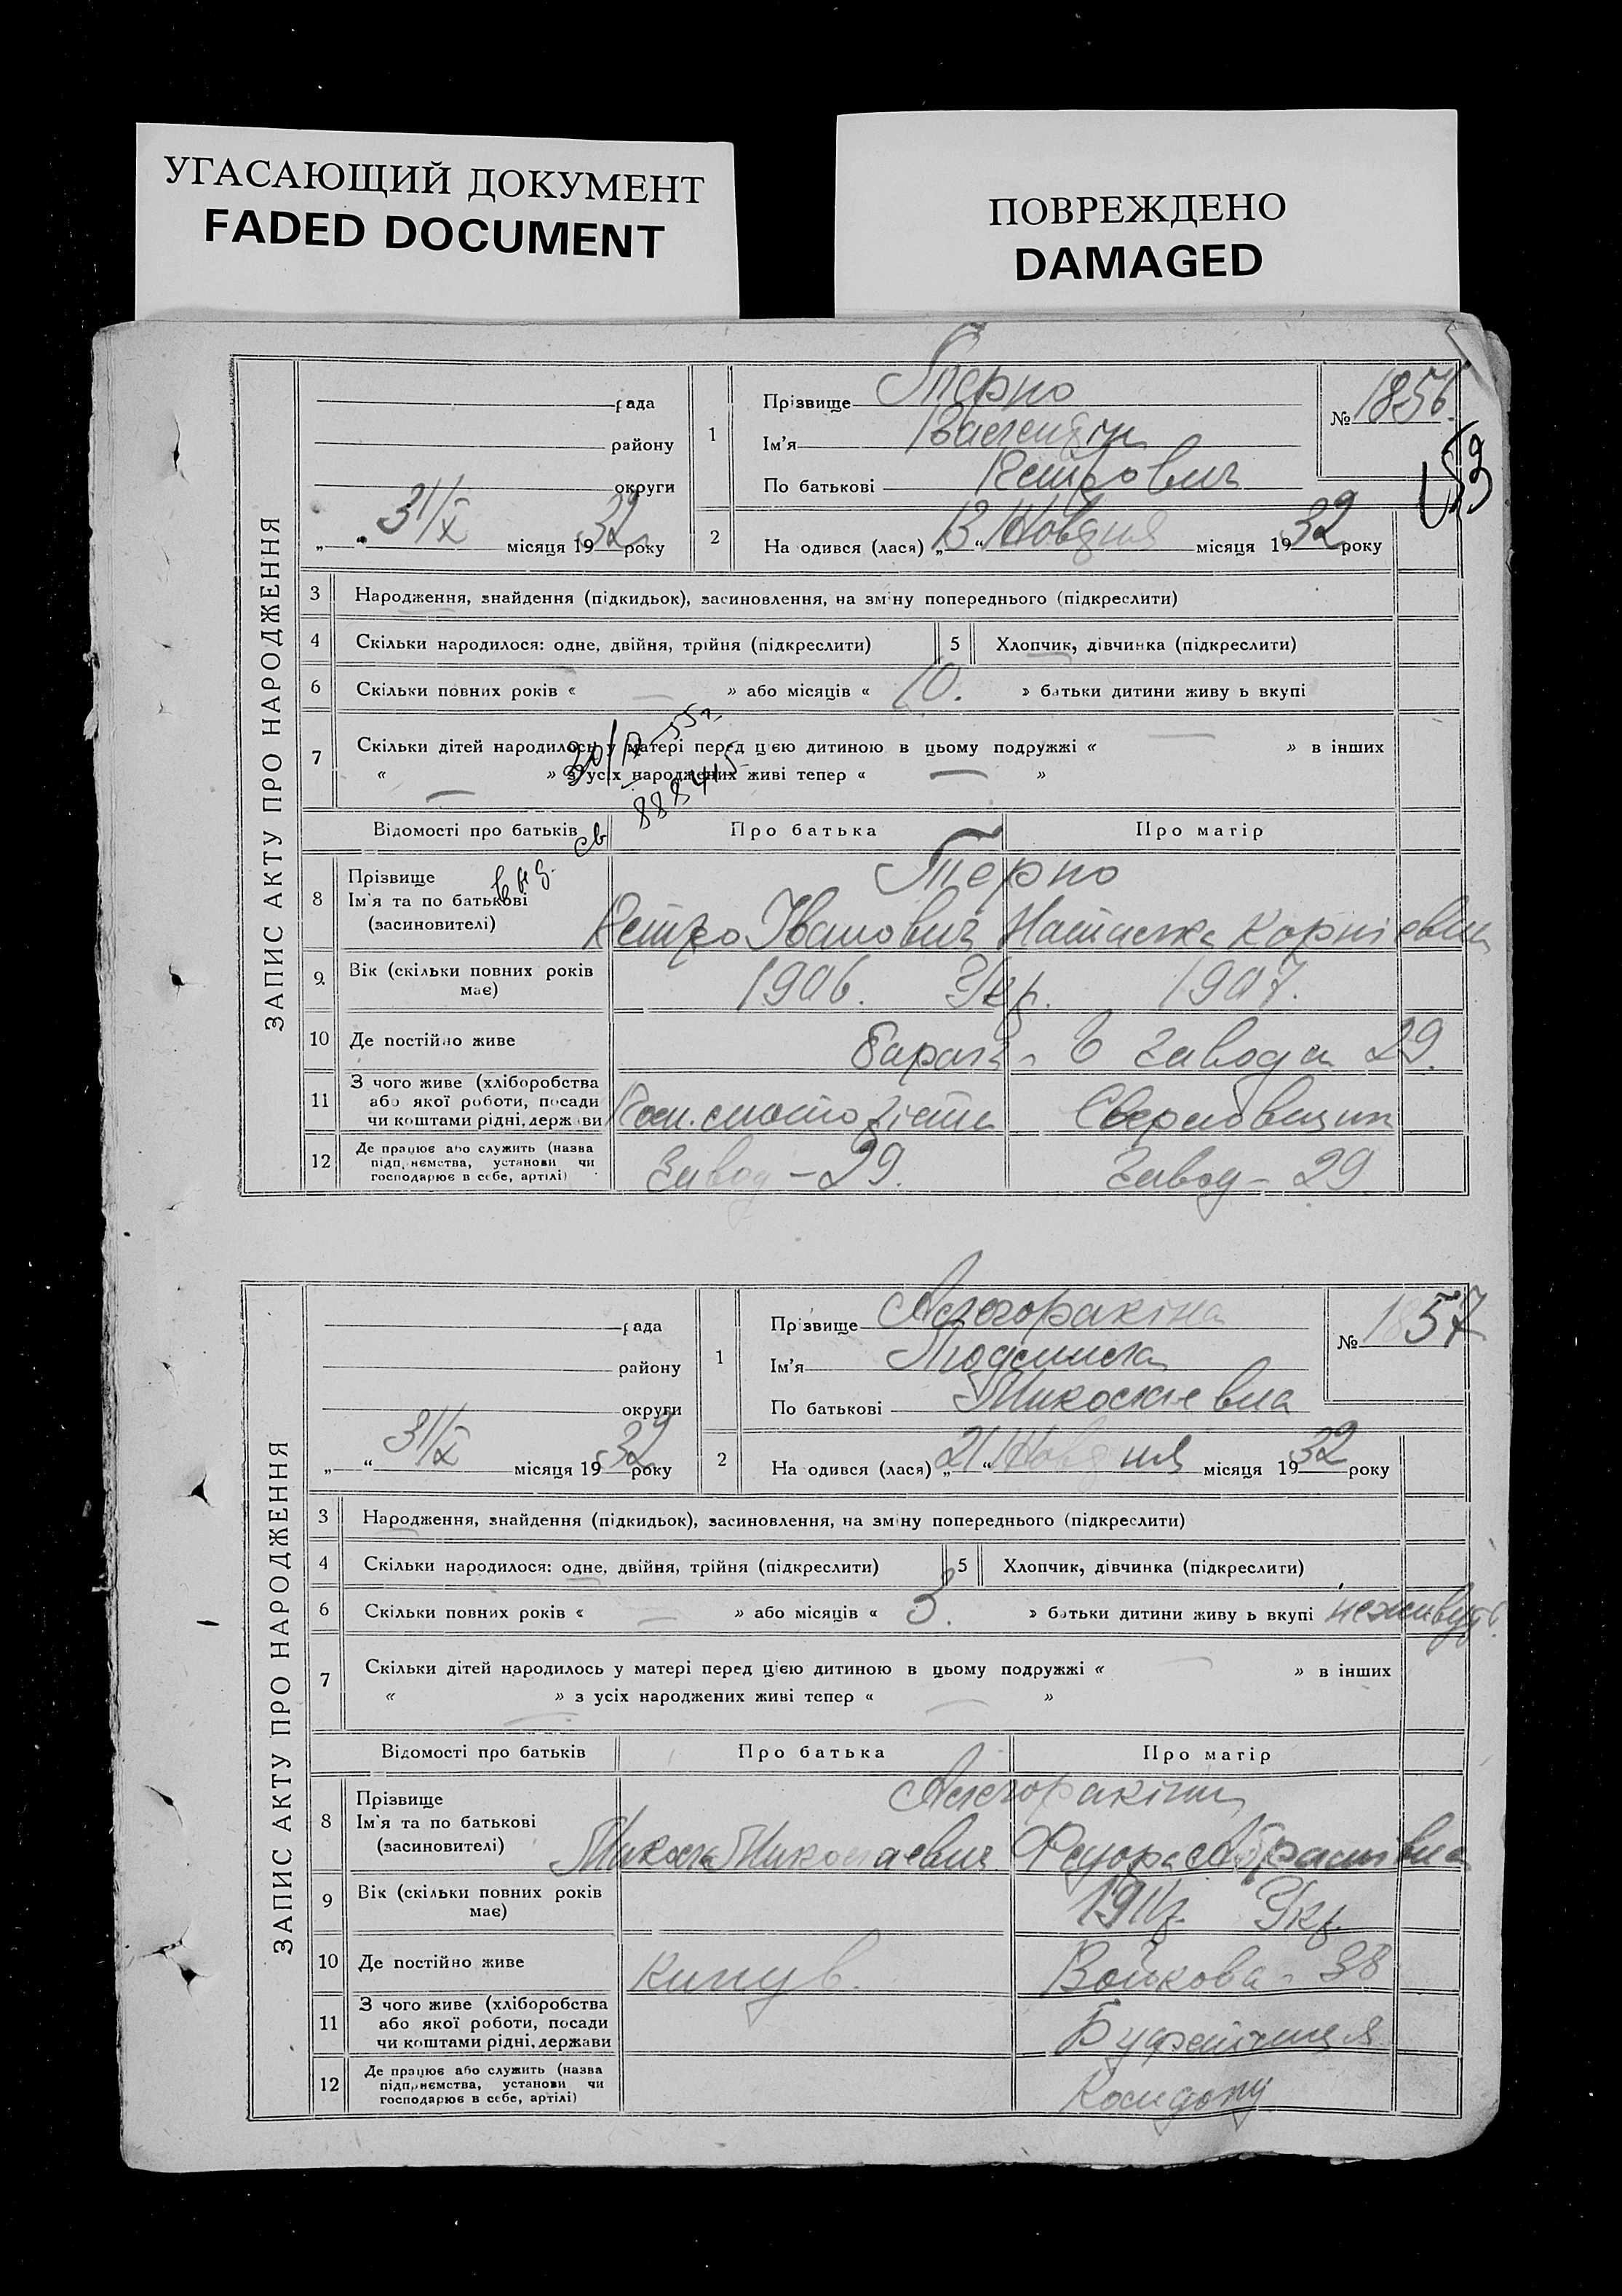 УГАСАЮЩИЙ ДОКУМЕНТ
FADED DOCUMENT
ПОВРЕЖДЕНО
DAMAGED
ЗАПИС АКТУ ПРО НАРОДЖЕННЯ
рада
району
округи
31/X місяця 1932 року
1
Прізвище Терно
Ім'я Валентін
По батькові Петрович
№ 1856.
53
2
На одився (лася) „13“ Жовдня місяця 1932 року
3 Народження, знайдення (підкидьок), засиновлення, на зміну попереднього (підкреслити)
4 Скільки народилося: одне, двійня, трійня (підкреслити) 5 Хлопчик, дівчинка (підкреслити)
6 Скільки повних років « — » або місяців « 10. » батьки дитини живу ь вкупі
7 Скільки дітей народилось у матері перед цією дитиною в цьому подружжі « — » в інших
« — » з усіх народжених живі тепер « — »
Відомості про батьків Про батька Про матір
8 Прізвище
Ім'я та по батькові
(засиновителі)
Терно
Петро Іванович Наталка Корніевна
9. Вік (скільки повних років має) 1906. Укр. 1907.
10 Де постійно живе Барак - 6 Завода 29.
11 З чого живе (хліборобства
або якої роботи, посади
чи коштами рідні, держ ви
12 Де працює або служить (назва
підп, нємства, установи чи
господарює в себе, артілі)
Завод - 29. Завод - 29
ЗАПИС АКТУ ПРО НАРОДЖЕННЯ
рада
району
округи
„—“ 31/X місяця 1932 року
1
Прізвище
Ім'я Людмила
По батькові Миколаевна
№ 1857
2
На одився (лася) „21“ Жовдня місяця 1932 року
3 Народження, знайдення (підкидьок), засиновлення, на зміну попереднього (підкреслити)
4 Скільки народилося: одне, двійня, трійня (підкреслити) 5 Хлопчик, дівчинка (підкреслити)
6 Скільки повних років « — » або місяців « 3. » батьки дитини живу ь вкупі неживуть.
7 Скільки дітей народилось у матері перед цією дитиною в цьому подружжі « — » в інших
« — » з усіх народжених живі тепер « — »
Відомості про батьків Про батька Про матір
8 Прізвище
Ім'я та по батькові
(засиновителі)
Микола Николаевич Федора Абрамівна
9 Вік (скільки повних років має) Укр.
10 Де постійно живе кинув. Войкова - 38
11 З чого живе (хліборобства
або якої роботи, посади
чи коштами рідні, держави
Буфетчиця
12 Де працює або служить (назва
підпрнємства, установи чи
господарює в себе, артілі)